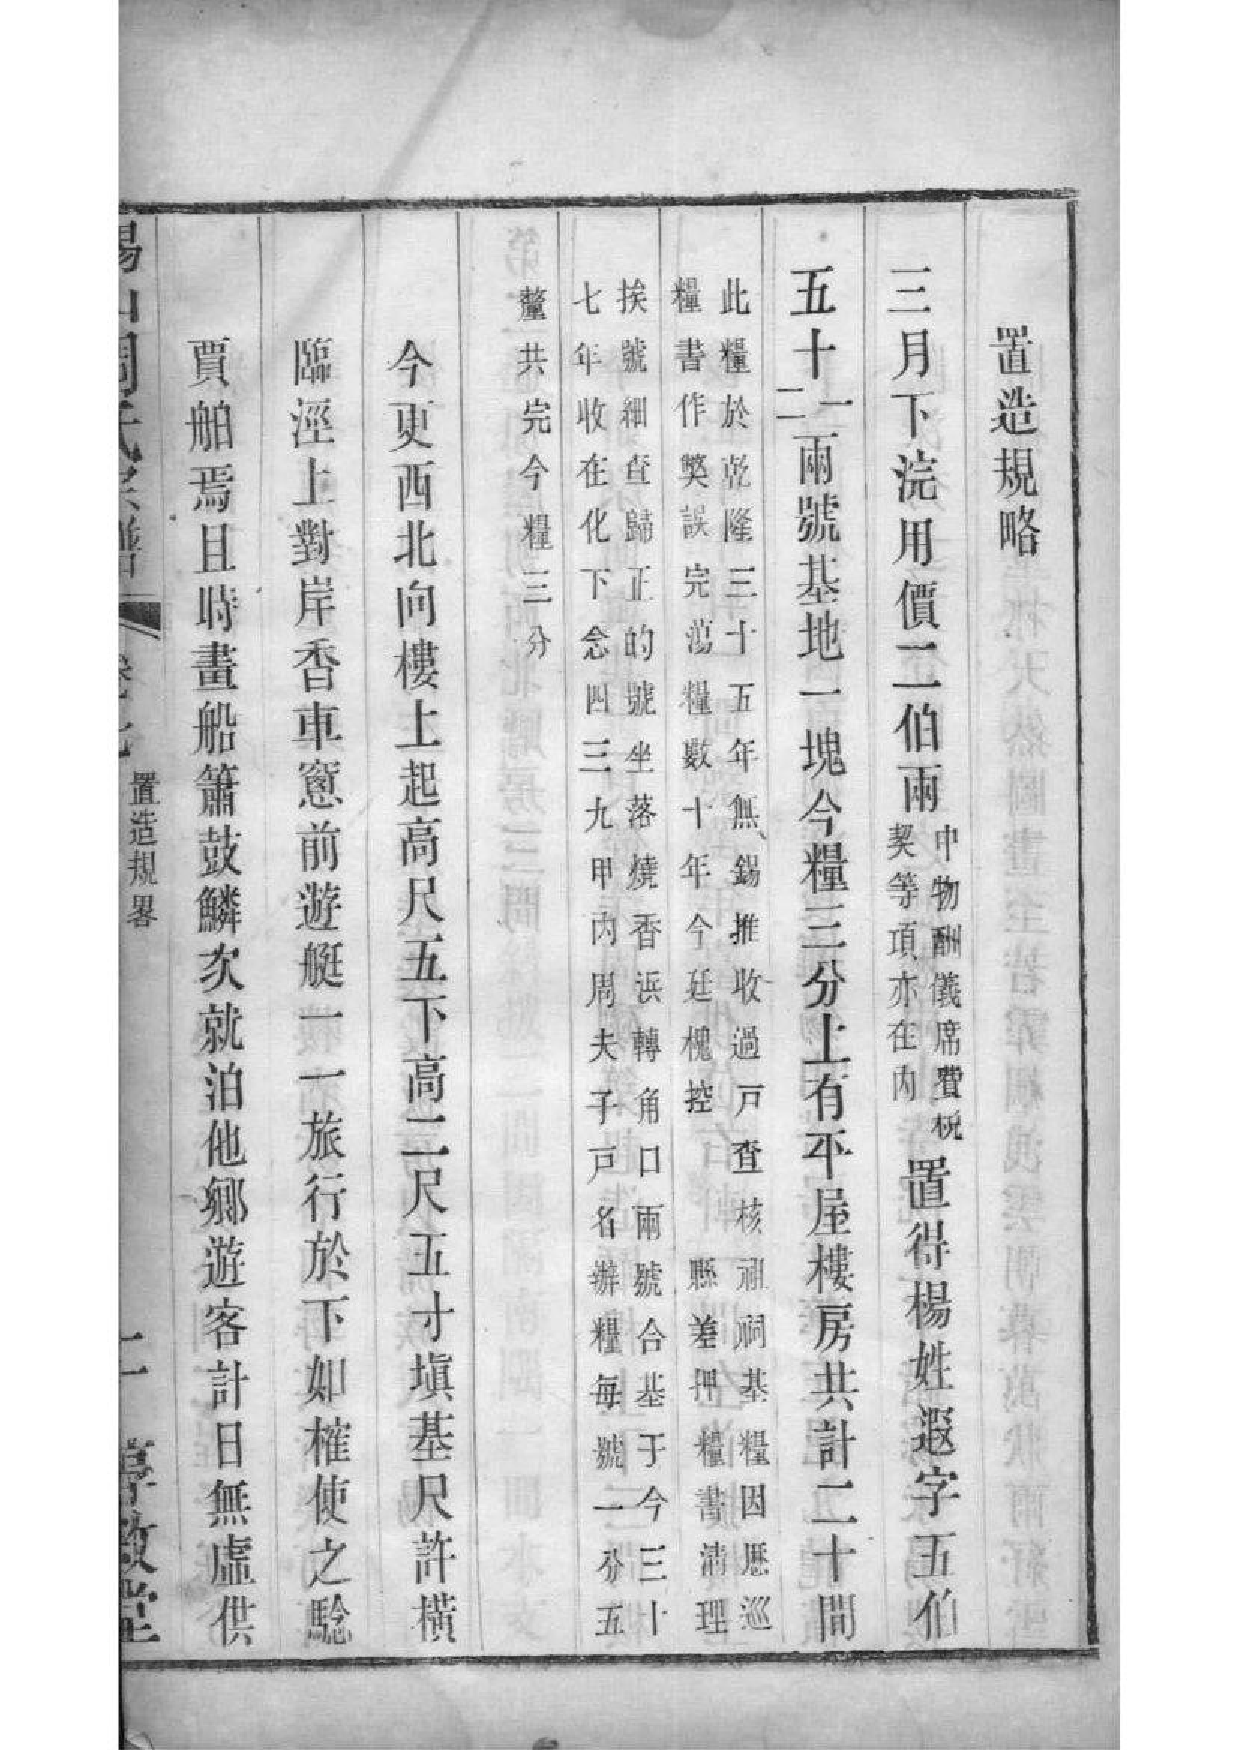 置造規略
三月下浣用價二伯兩
中物酬儀席費稅
契等項亦在內
置得楊姓遐字五伯
五十一二兩號基地一塊今糧三分上有平屋樓房共計二十間
此糧於乾隆三十五年無錫推收過戸查核祖祠基糧因歷巡
糧書作獘誤完蕩糧數十年今廷槐控 縣差押糧書清理
挨號細查歸正的號坐落燒香浜轉角口兩號合基于今三十
七年收在化下念四三九甲內周夫子戸名辦糧每號一分五
釐共完今糧三分
今更西北向樓上起高尺五下高二尺五寸塡基尺許橫
臨涇上對岸香車窻前遊艇一一旅行於下如榷使之騐
賈舶焉且時畫船簫鼓鱗次就泊他鄉遊客計日無虛供
錫山周氏宗譜
卷七
置造規畧
二